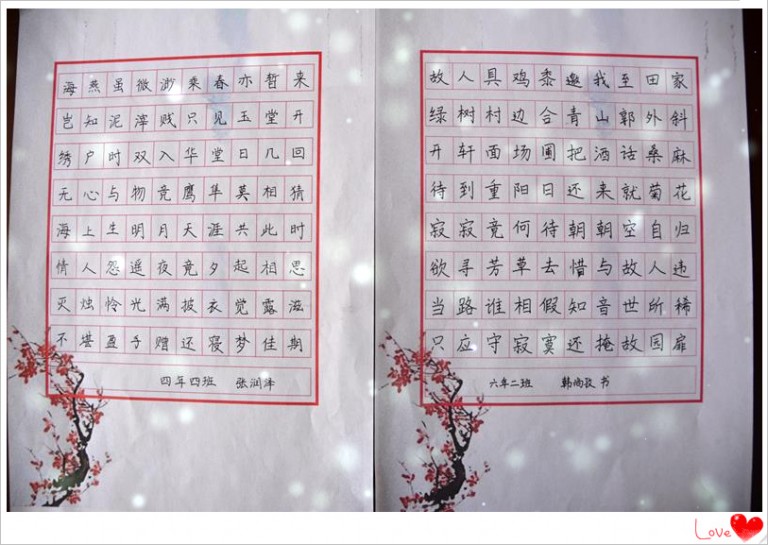 海燕虽微渺乘春亦暂来
岂知泥滓贱只见玉堂开
绣户时双入华堂日几回
无心与物竞鹰隼莫相猜
海上生明月天涯共此时
情人怨遥夜竟夕起相思
灭烛怜光满披衣觉露滋
不堪盈手赠还寝梦佳期
四年四班 张润泽
故人具鸡黍邀我至田家
绿树村边合青山郭外斜
开轩面场圃把酒话桑麻
待到重阳日还来就菊花
寂寂竟何待朝朝空自归
欲寻芳草去惜与故人违
当路谁相假知音世所稀
只应守寂寞还掩故园扉
六年二班 韩 书
Love